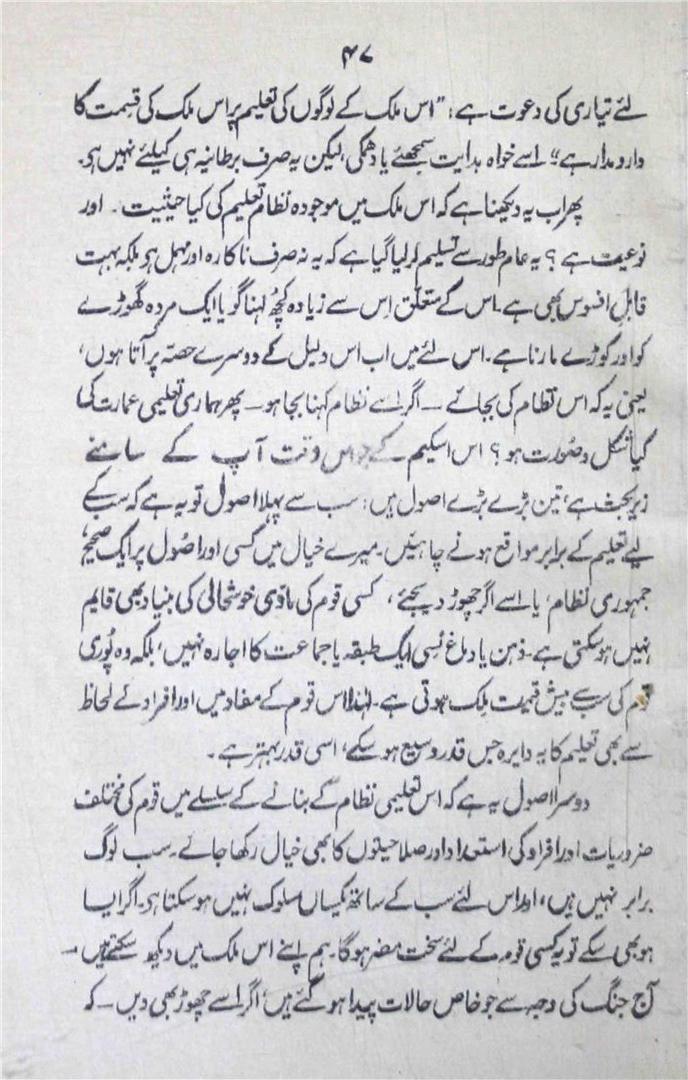 ۴۷
لئے تیاری کی دعوت ہے: "اس ملک کے لوگوں کی تعلیم پر اس ملک کی قسمت کا
دارومدار ہے"۔ اسے خواہ ہدایت سمجھئے یا دھمکی، لیکن یہ صرف برطانیہ ہی کیلئے نہیں ہی۔
پھر اب یہ دیکھنا ہے کہ اس ملک میں موجودہ نظام تعلیم کی کیا حیثیت۔ اور
نوعیت ہے ؟ یہ عام طور سے تسلیم کر لیا گیا ہے کہ یہ نہ صرف ناکارہ اور مہمل ہو بلکہ بہت
قابلِ افسوس بھی ہے۔ اس کے متعلق اس سے زیادہ کچھ کہنا گویا ایک مردہ گھوڑے
کو اور کوڑے مارنا ہے۔ اس لئے میں اب اس دلیل کے دوسرے حصّہ پر آتا ہوں،
یعنی یہ کہ اس نظام کی بجائے — اگر اسے نظام کہنا بجا ہو — پھر ہماری تعلیمی عمارت کی
کیا شکل و صورت ہو ؟ اس اسکیم کے جو اس وقت آپ کے سامنے
زیر بحث ہے، تین بڑے بڑے اصول ہیں: سب سے پہلا اصول تو یہ ہے کہ سب کے
لیے تعلیم کے برابر مواقع ہونے چاہئیں۔ میرے خیال میں کسی اور اصُول پر ایک صحیح
جمہوری نظام، یا اسے اگر چھوڑ دیجئے، کسی قوم کی مادّی خوشحالی کی بنیاد بھی قایم
نہیں ہو سکتی ہے۔ ذہن یا دماغ کسی ایک طبقہ یا جماعت کا اجارہ نہیں، بلکہ وہ پُوری
قوم کی سب سے بیش قیمت مِلک ہوتی ہے۔ لہٰذا اس قوم کے مفاد میں اور افراد کے لحاظ
سے بھی تعلیم کا یہ دایرہ جس قدر وسیع ہو سکے، اسی قدر بہتر ہے۔
دوسرا اصول یہ ہے کہ اس تعلیمی نظام کے بنانے کے سلسلے میں قوم کی مختلف
ضروریات اور افراد کی استعداد اور صلاحیتوں کا بھی خیال رکھا جائے۔ سب لوگ
برابر نہیں ہیں، اور اس لئے سب کے ساتھ یکساں سلوک نہیں ہو سکتا ہی۔ اگر ایسا
ہو بھی سکے تو یہ کسی قوم کے لئے سخت مضر ہوگا۔ ہم اپنے اس ملک میں دیکھ سکتے ہیں —
آج جنگ کی وجہ سے جو خاص حالات پیدا ہو گئے ہیں، اگر اسے چھوڑ بھی دیں — کہ